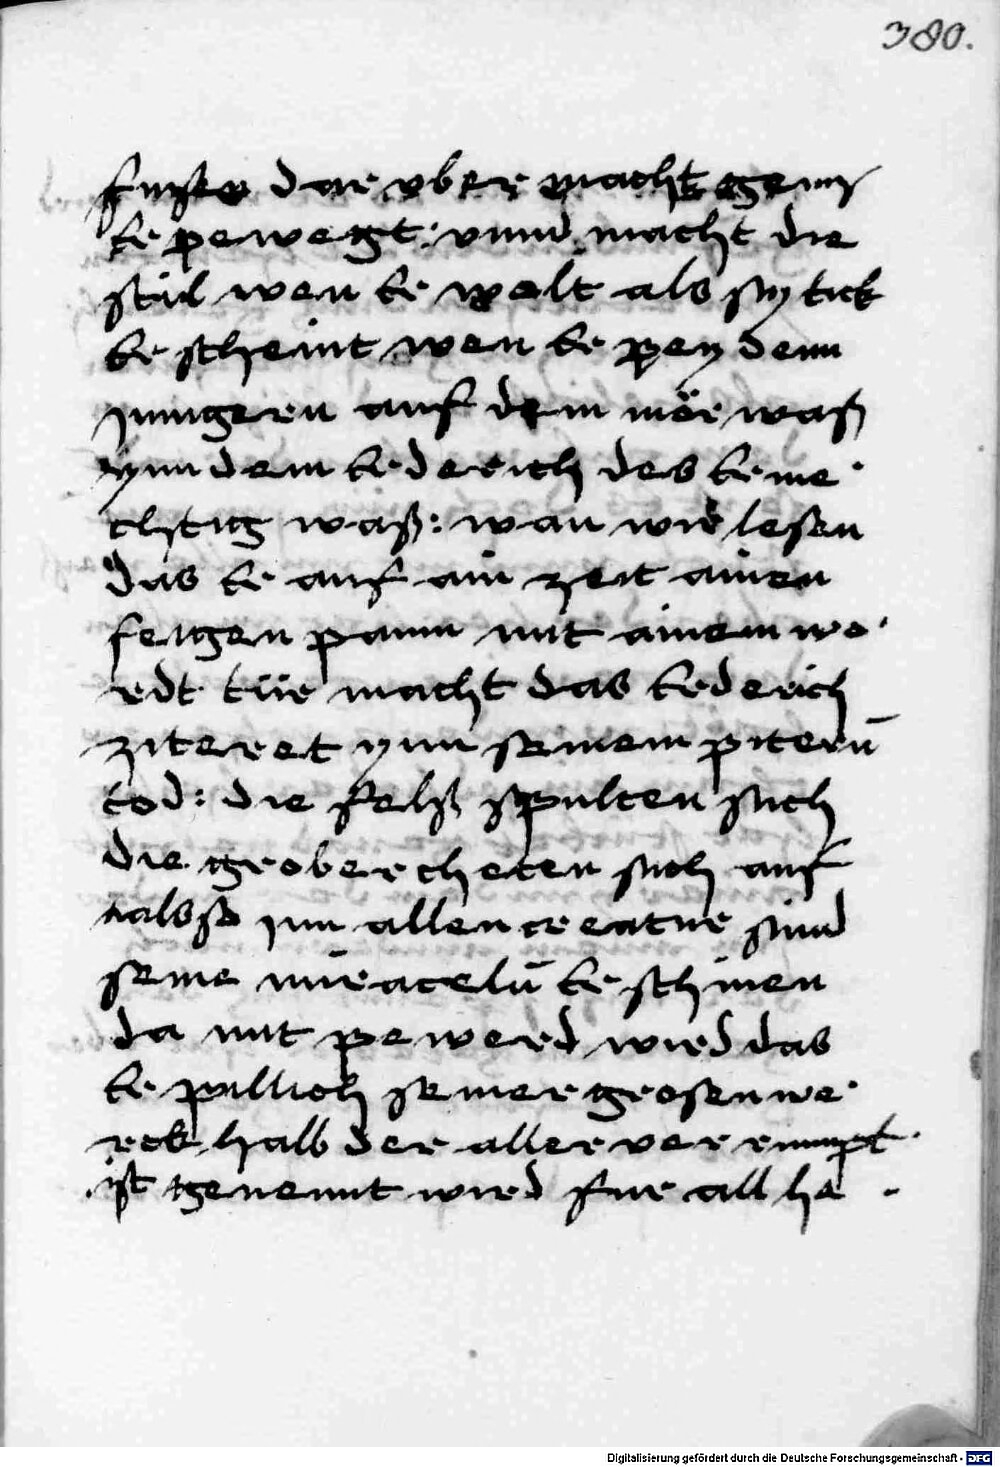 380.
fusse dar vber macht geng
Er pewegt: vnnd macht die
stil wen Er wolt als sy tick
Er scheint wen Er pey denn
jungern auf dem mör waß
ynn dem Erderich des Er me
chtig waß: wan wir lesen
das Er auf ain zeit ainen
feigen paum mit ainem wo
rdt tür macht das Erderich
ziteret ynn seinem piterñ
tod: die felß spulten sich
die grober cheten sich auf
alsso jnn allen creatur sind
seine miracelū Er schinen
da mit pewerd wird das
Er pillich seiner grosen we
rck halb der aller ver rumpt
ist genennt wird fur all he
Digitalisierung gefördert durch die Deutsche Forschungsgemeinschaft - DFG